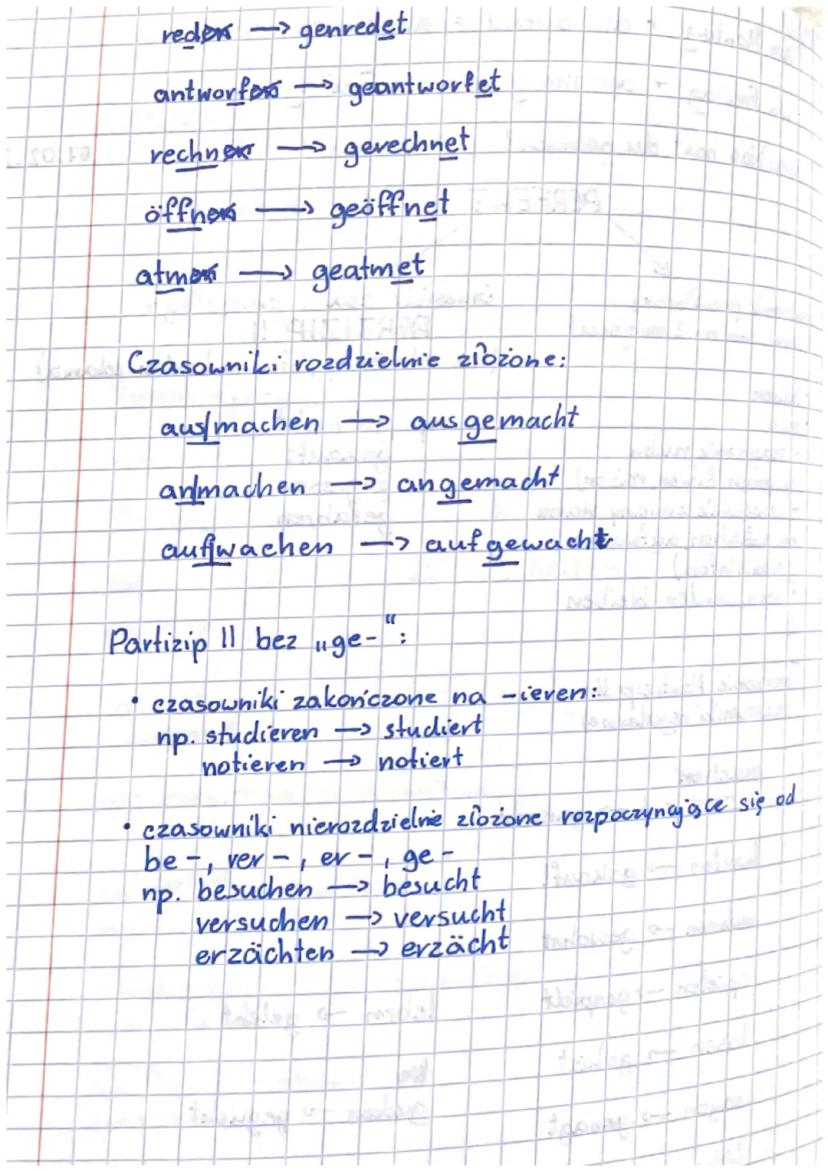 reden → genredet
antworfen → geantworfet
rechnen → gerechnet
öffnen → geöffnet
atmen → geatmet
Czasowniki rozdzielnie złożone:
aus/machen → ausgemacht
an/machen → angemacht
auf/wachen → aufgewacht
Partizip II bez „ge-":
• czasowniki zakończone na -ieren:
np. studieren → studiert
notieren → notiert
• czasowniki nierozdzielnie złożone rozpoczynające się od
be-, ver-, er-, ge-
np. besuchen → besucht
versuchen → versucht
erzächten → erzächt